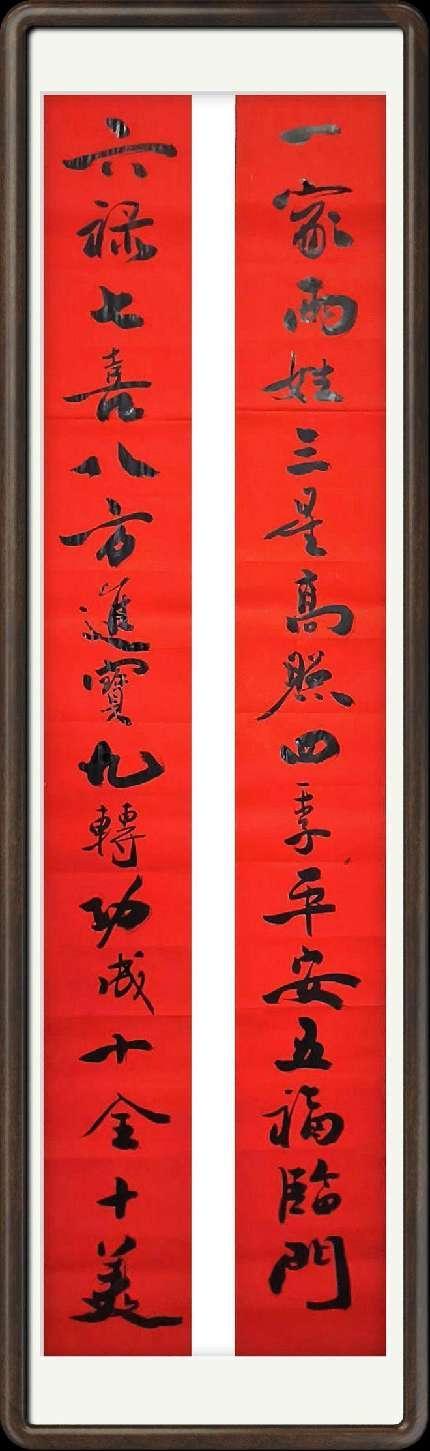 一家兩娃三星高照四季平安五福臨門
六祿七喜八方進寶九轉功成十全十美